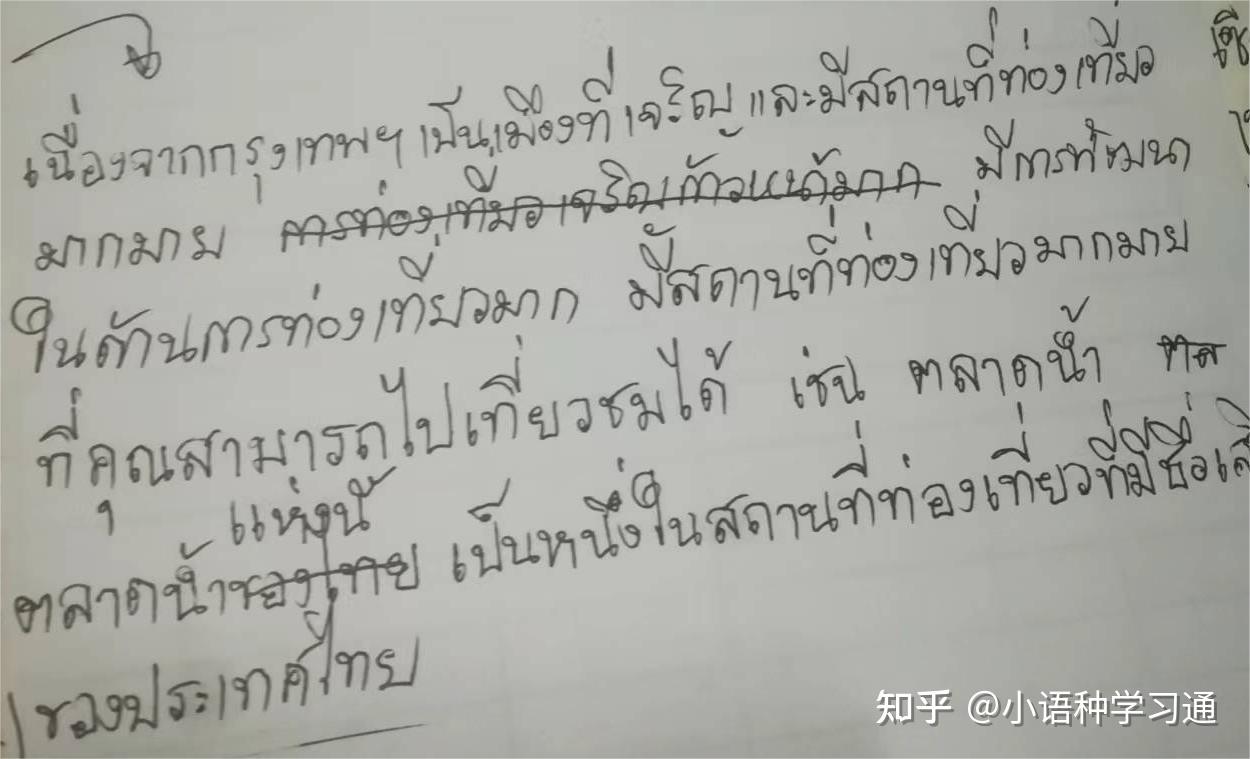 เนื่องจากกรุงเทพฯ เป็นเมืองที่เจริญ และมีสถานที่ท่องเที่ยว
มากมาย การท่องเที่ยวเจริญก้าวหน้ามาก มีการพัฒนา
ในด้านการท่องเที่ยวมาก มีสถานที่ท่องเที่ยวมากมาย
ที่คุณสามารถไปเที่ยวชมได้ เช่น ตลาดน้ำ
แห่งนี้
ตลาดน้ำของไทย เป็นหนึ่งในสถานที่ท่องเที่ยวที่มีชื่อ
ของประเทศไทย
知乎 @小语种学习通